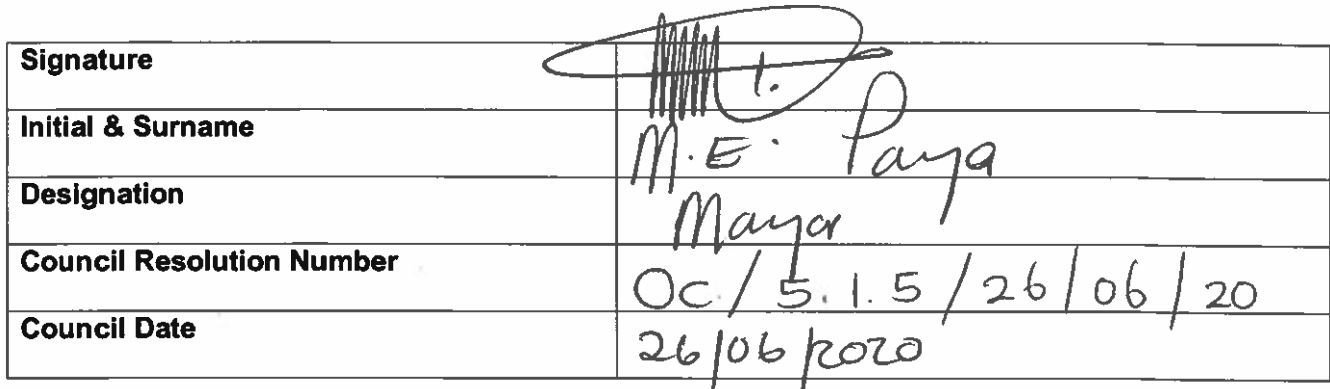 Signature
Initial & Surname M.E. Paya
Designation Mayor
Council Resolution Number OC/5.1.5/26/06/20
Council Date 26/06/2020